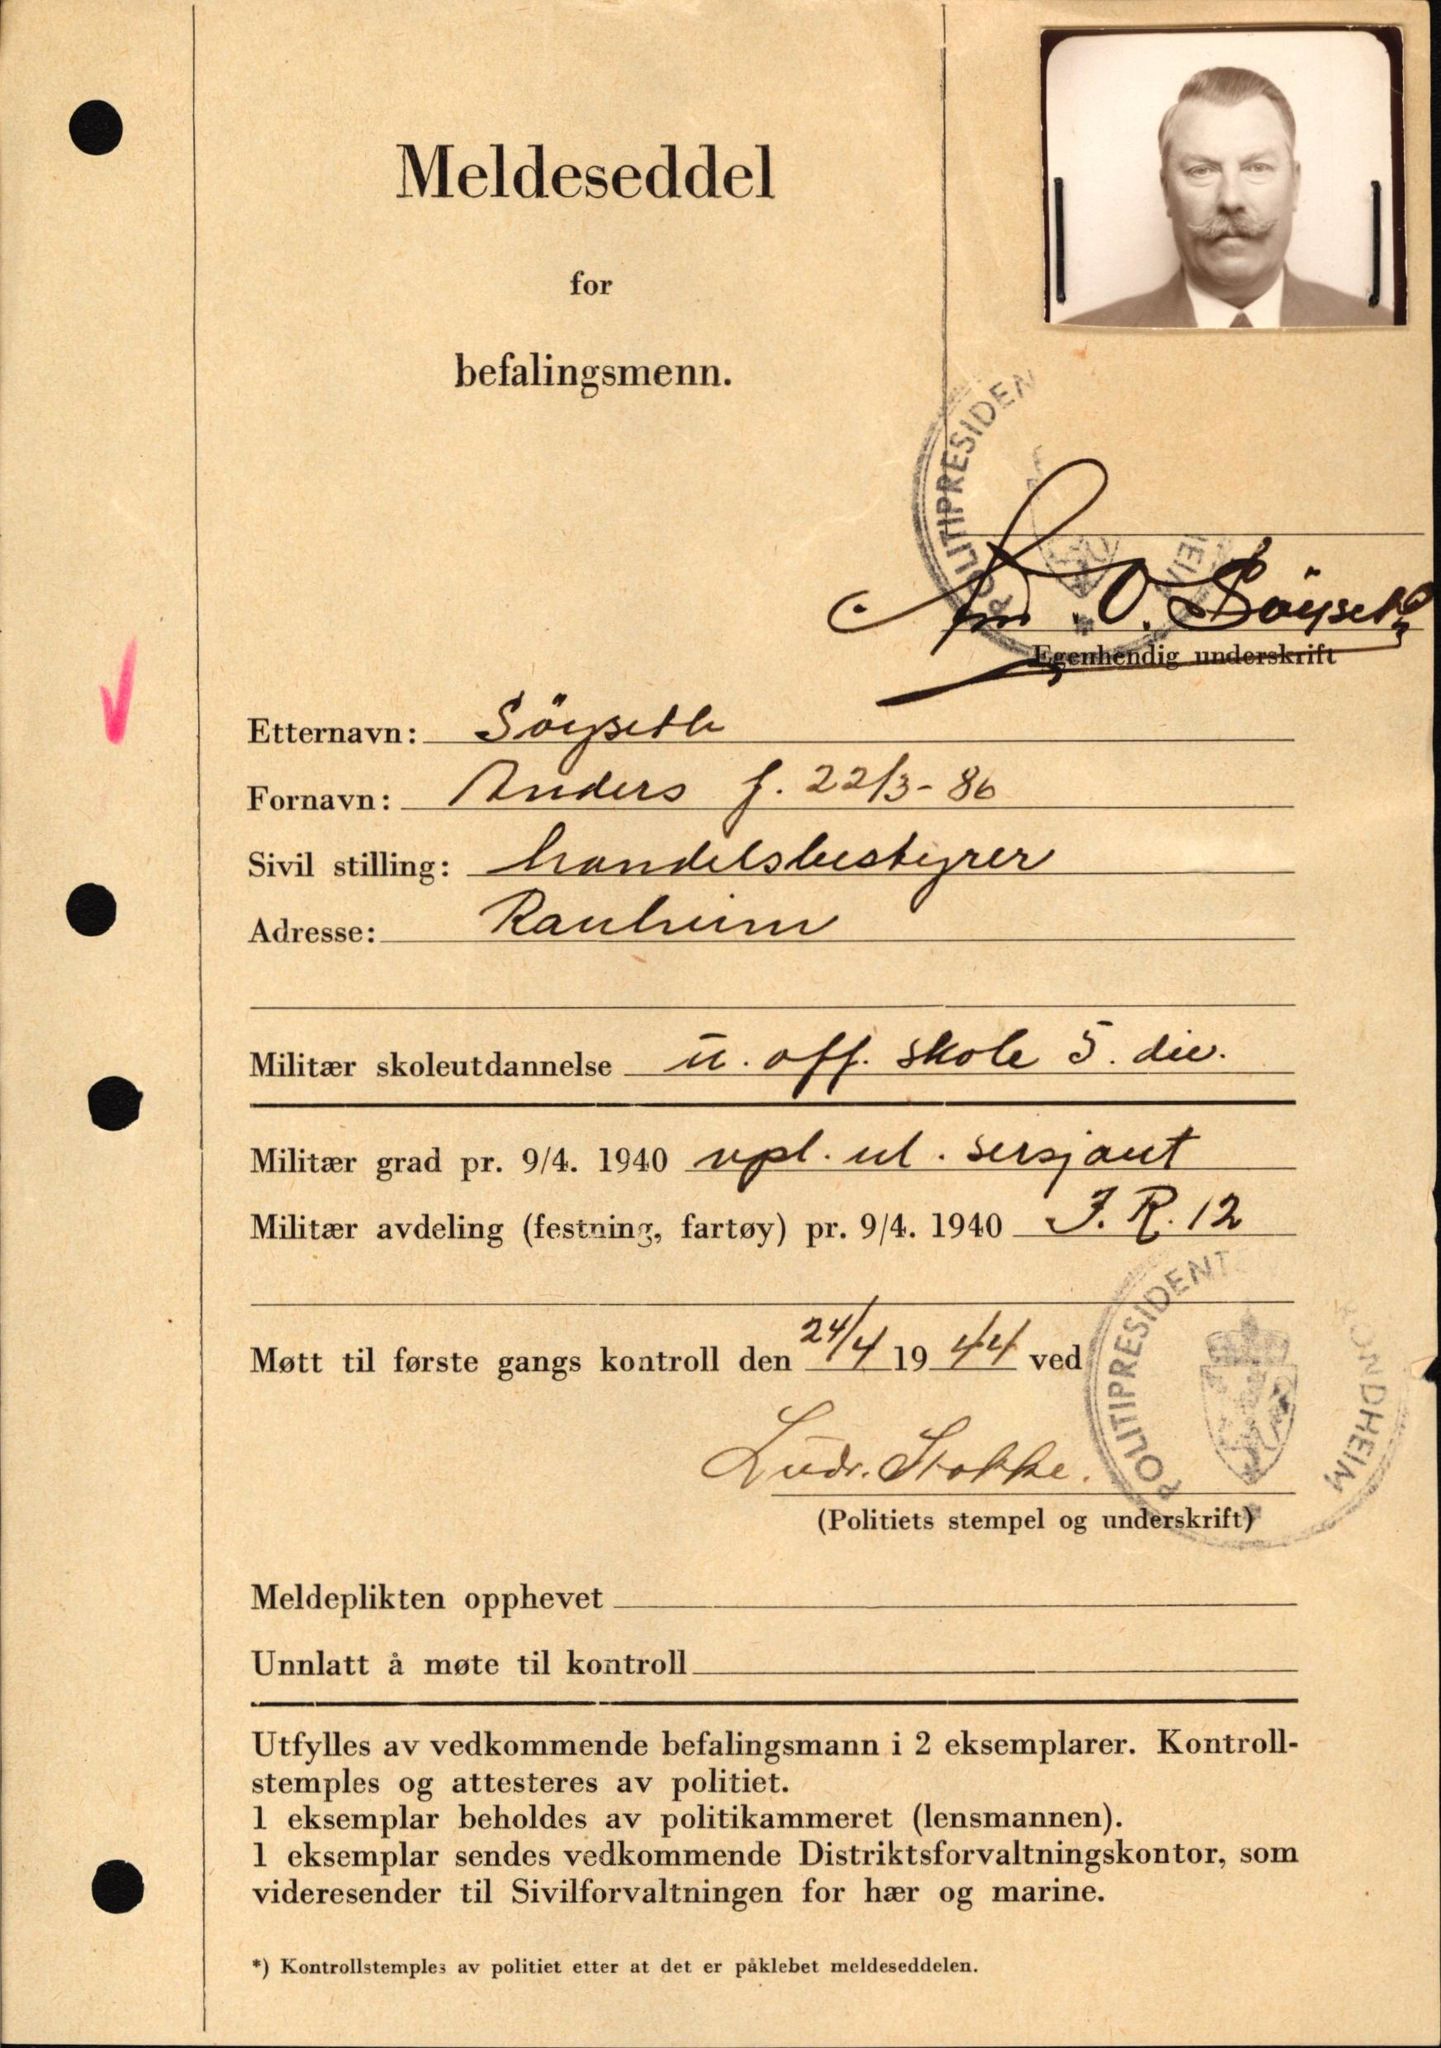 Meldeseddel
for
befalingsmenn.
POLITIPRESIDEN
HEIM
And. O. Söyseth
Egenhendig underskrift
Etternavn: Söyseth
Fornavn: Anders f. 22/3-86
Sivil stilling: handelsbestyrer
Adresse: Ranheim
Militær skoleutdannelse u. off. skole 5. div.
Militær grad pr. 9/4. 1940 vpl. ut. sersjant
Militær avdeling (festning, fartøy) pr. 9/4. 1940 I.R. 12
Møtt til første gangs kontroll den 24/4 1944 ved
POLITIPRESIDENT
RONDHEIM
Ludv. Stokke.
(Politiets stempel og underskrift)
Meldeplikten opphevet
Unnlatt å møte til kontroll
Utfylles av vedkommende befalingsmann i 2 eksemplarer. Kontroll-
stemples og attesteres av politiet.
1 eksemplar beholdes av politikammeret (lensmannen).
1 eksemplar sendes vedkommende Distriktsforvaltningskontor, som
videresender til Sivilforvaltningen for hær og marine.
*) Kontrollstemples av politiet etter at det er påklebet meldeseddelen.